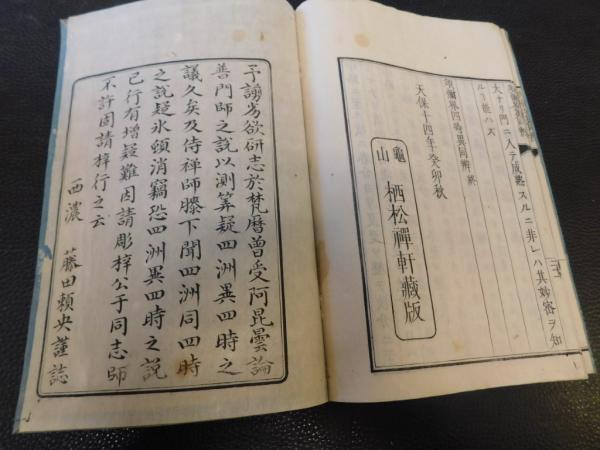 大ナリ門ニ入テ成熟スルニ非レハ其妙密ヲ知
ルコ能ハス
須彌界四時異同辨終
天保十四年癸卯秋
龜山
栖松禪軒藏版
予謭劣欲研志於梵曆曾受阿毘曇論
善門師之説以測算疑四洲異四時之
議久矣及侍禪師滕下聞四洲同四時
之説疑氷頓消竊恐四洲異四時之説
已行有增疑難因請彫梓公于同志師
不許固請梓行之云
西濃 藤田頼央謹誌